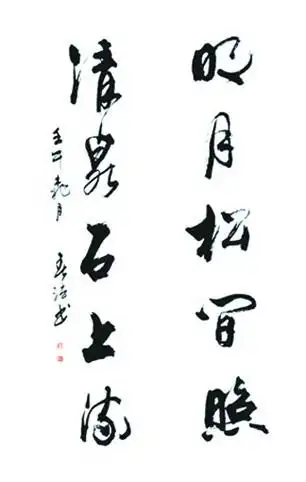 明月松间照
清泉石上流
壬午尧月